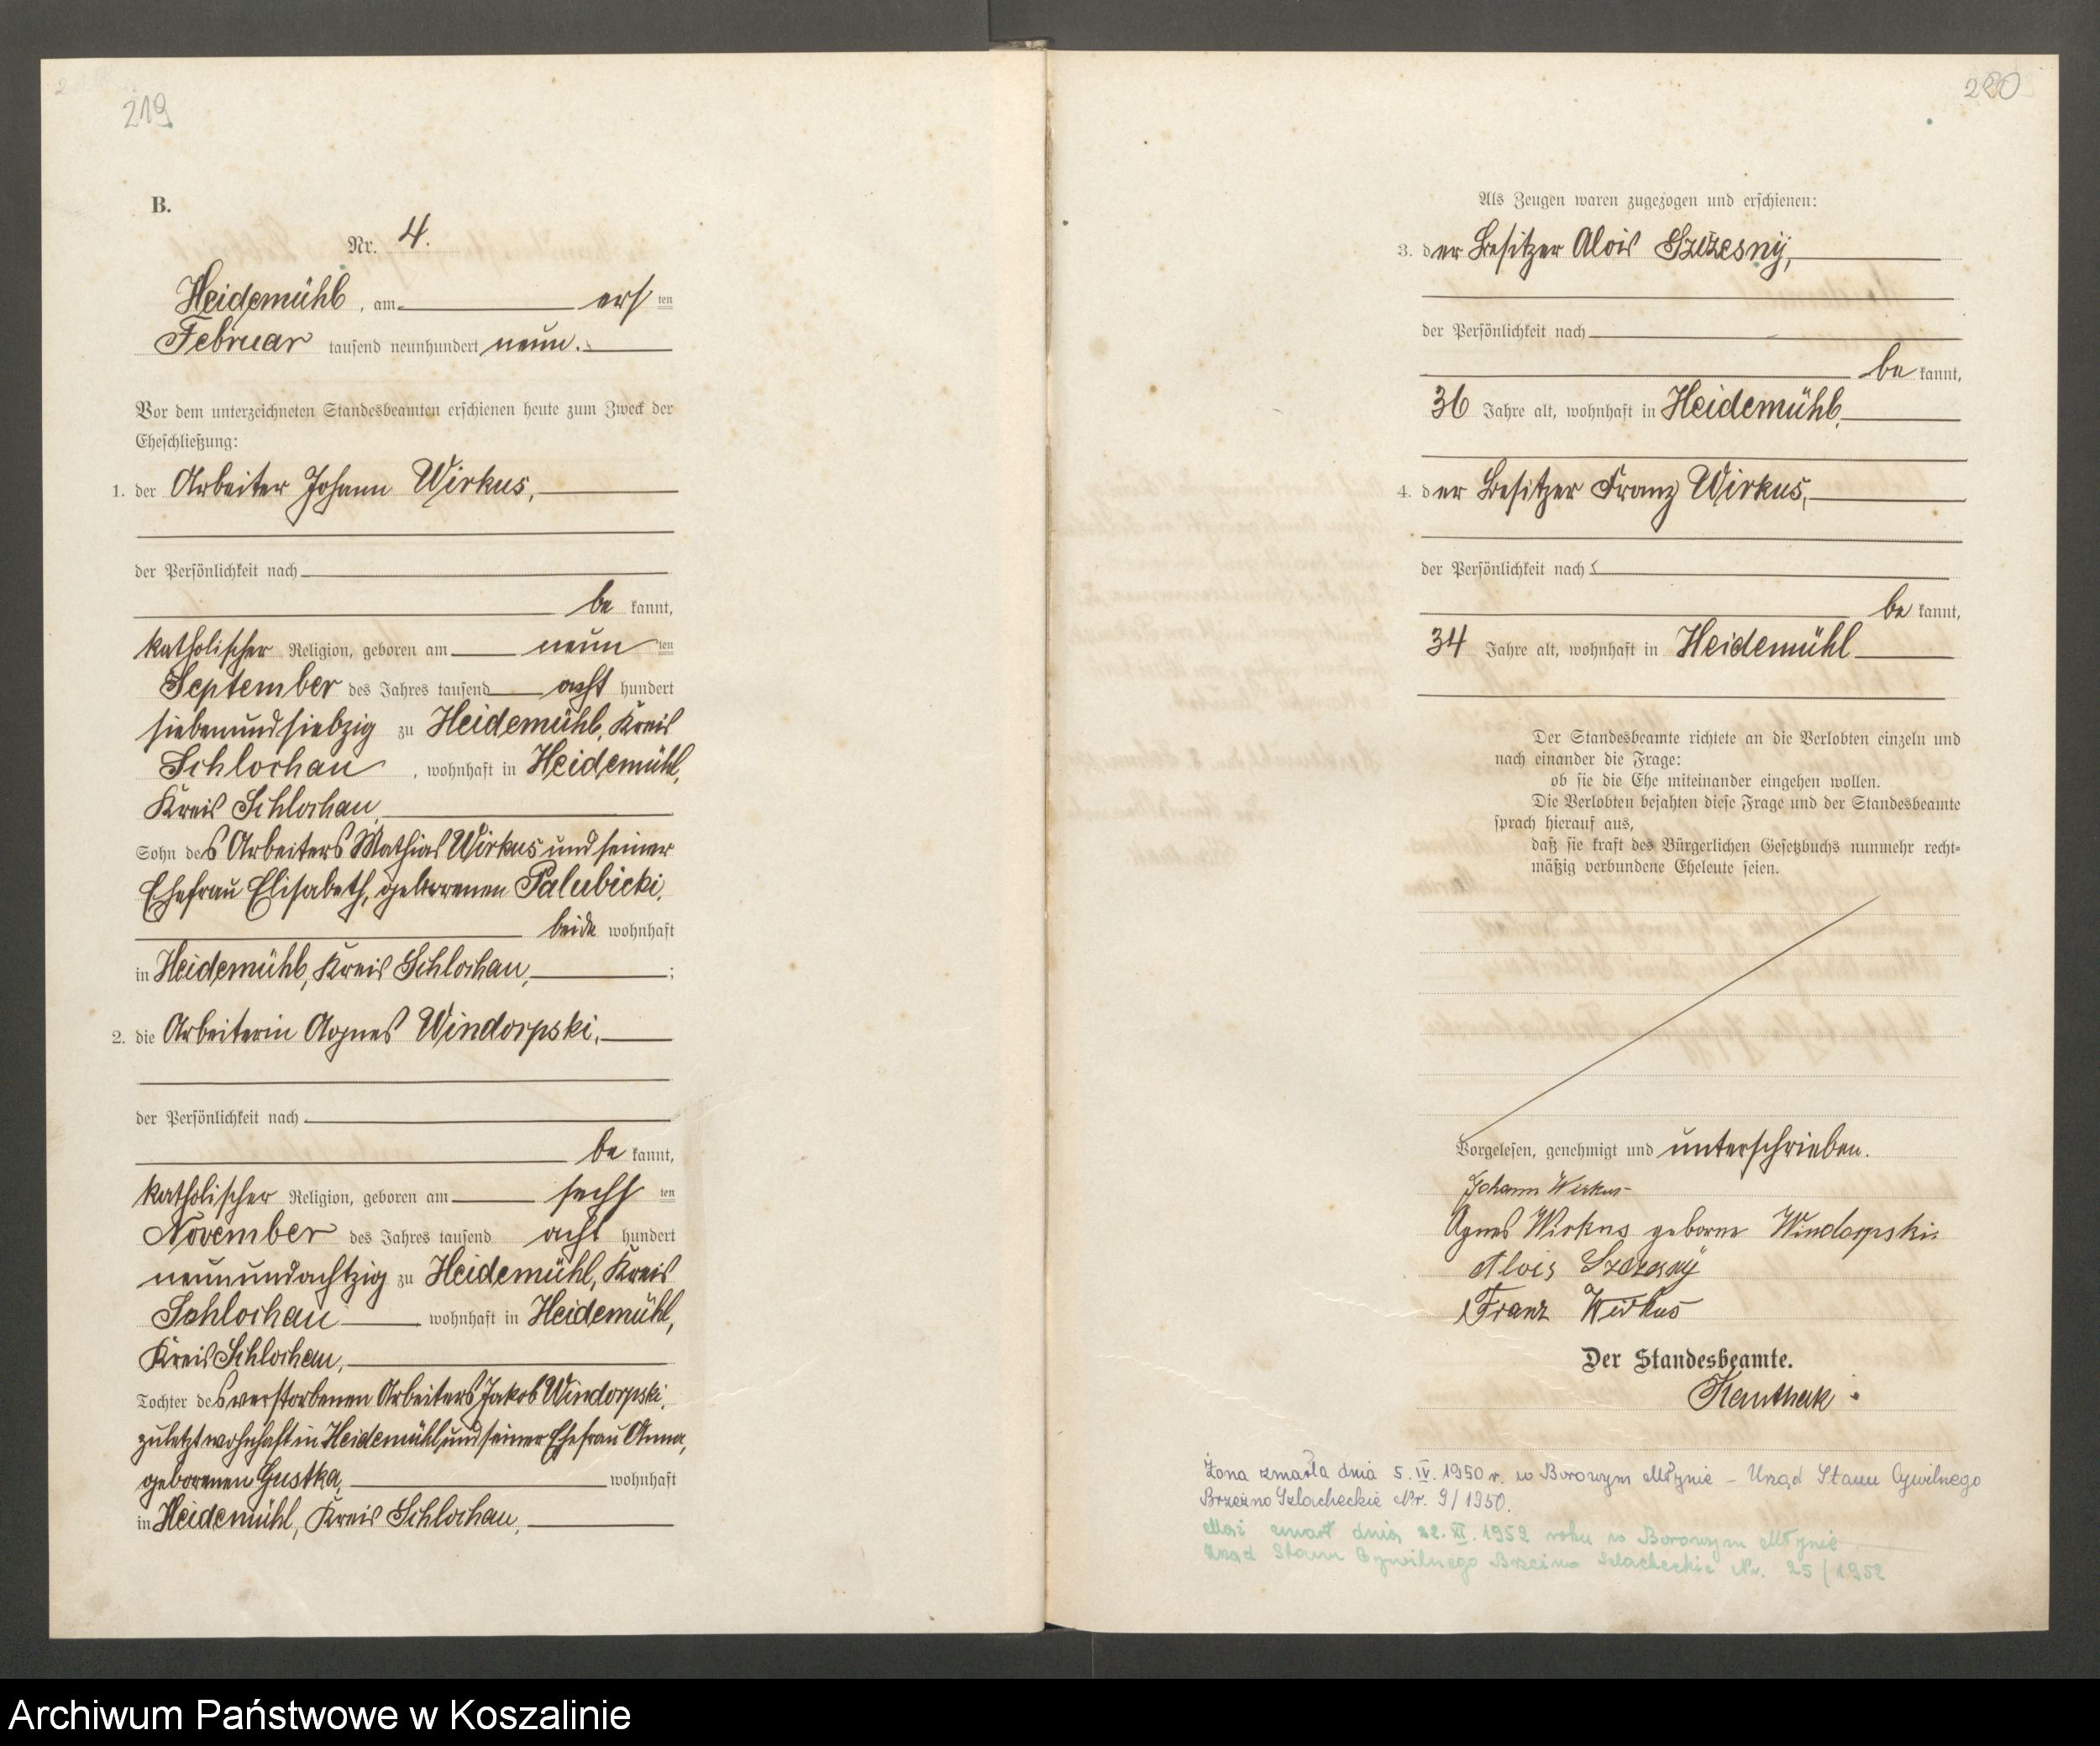 219
B.
Nr. 4.
Heidemühl, am ersten
Februar tausend neunhundert neun.
Vor dem unterzeichneten Standesbeamten erschienen heute zum Zweck der
Eheschließung:
1. der Arbeiter Johann Wirkus,
der Persönlichkeit nach
bekannt,
katholischer Religion, geboren am neunten
September des Jahres tausend acht hundert
siebenundsiebzig zu Heidemühl, Kreis
Schlochau, wohnhaft in Heidemühl,
Kreis Schlochau,
Sohn des Arbeiters Mathias Wirkus und seiner
Ehefrau Elisabeth, geborenen Palubicki,
beide wohnhaft
in Heidemühl, Kreis Schlochau, ;
2. die Arbeiterin Agnes Windorpski,
der Persönlichkeit nach
bekannt,
katholischer Religion, geboren am sechsten
November des Jahres tausend acht hundert
neunundachtzig zu Heidemühl, Kreis
Schlochau wohnhaft in Heidemühl,
Kreis Schlochau,
Tochter des verstorbenen Arbeiters Jakob Windorpski,
zuletzt wohnhaft in Heidemühl, und seiner Ehefrau Anna,
geborenen Gustka, wohnhaft
in Heidemühl, Kreis Schlochau,
Als Zeugen waren zugezogen und erschienen:
3. der Besitzer Alois Szczesny,
der Persönlichkeit nach
bekannt,
36 Jahre alt, wohnhaft in Heidemühl,
4. der Besitzer Franz Wirkus,
der Persönlichkeit nach
bekannt,
34 Jahre alt, wohnhaft in Heidemühl
Der Standesbeamte richtete an die Verlobten einzeln und
nach einander die Frage:
ob sie die Ehe miteinander eingehen wollen.
Die Verlobten bejahten diese Frage und der Standesbeamte
sprach hierauf aus,
daß sie kraft des Bürgerlichen Gesetzbuchs nunmehr recht-
mäßig verbundene Eheleute seien.
Vorgelesen, genehmigt und unterschrieben.
Johann Wirkus
Agnes Wirkus geborne Windorpski
Alois Szczesny
Franz Wirkus
Der Standesbeamte.
Żona zmarła dnia 5. IV. 1950 r. w Borowym Młynie – Urząd Stanu Cywilnego
Brzeźno Szlacheckie Nr. 9/1950.
Mąż zmarł dnia 22. XI. 1952 roku w Borowym Młynie
Urząd Stanu Cywilnego Brzeźno Szlacheckie Nr. 25/1952
Archiwum Państwowe w Koszalinie